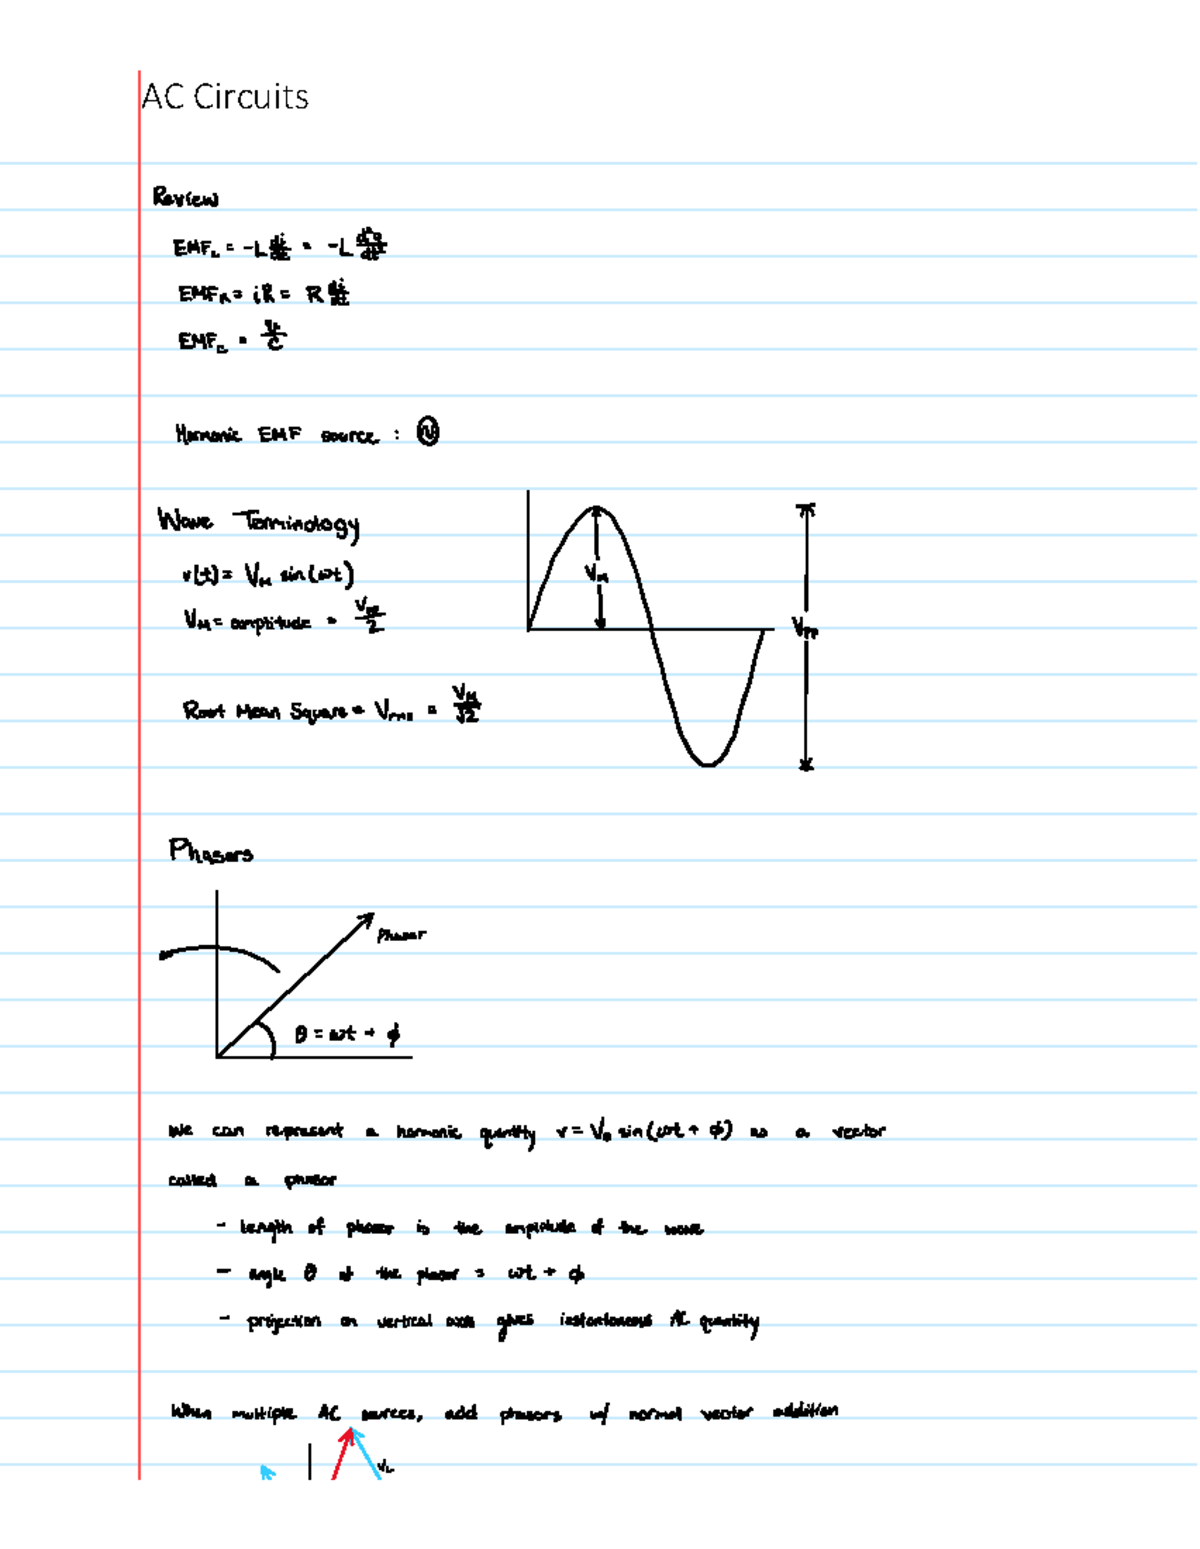 AC Circuits
Review
EMF_L = -L di/dt = -L d²q/dt²
EMF_R = iR = R di/dt
EMF_C = q/C
Harmonic EMF source :
Wave Terminology
v(t) = V_M sin(ωt)
V_M = amplitude = V_PP/2
V_M
V_PP
Root Mean Square = V_rms = V_M/√2
Phasers
Phasor
θ = ωt + ϕ
We can represent a harmonic quantity v = V_m sin(ωt + ϕ) as a vector
called a phasor
- length of phasor is the amplitude of the wave
- angle θ of the phasor = ωt + ϕ
- projection on vertical axis gives instantaneous AC quantity
When multiple AC sources, add phasors w/ normal vector addition
V_L